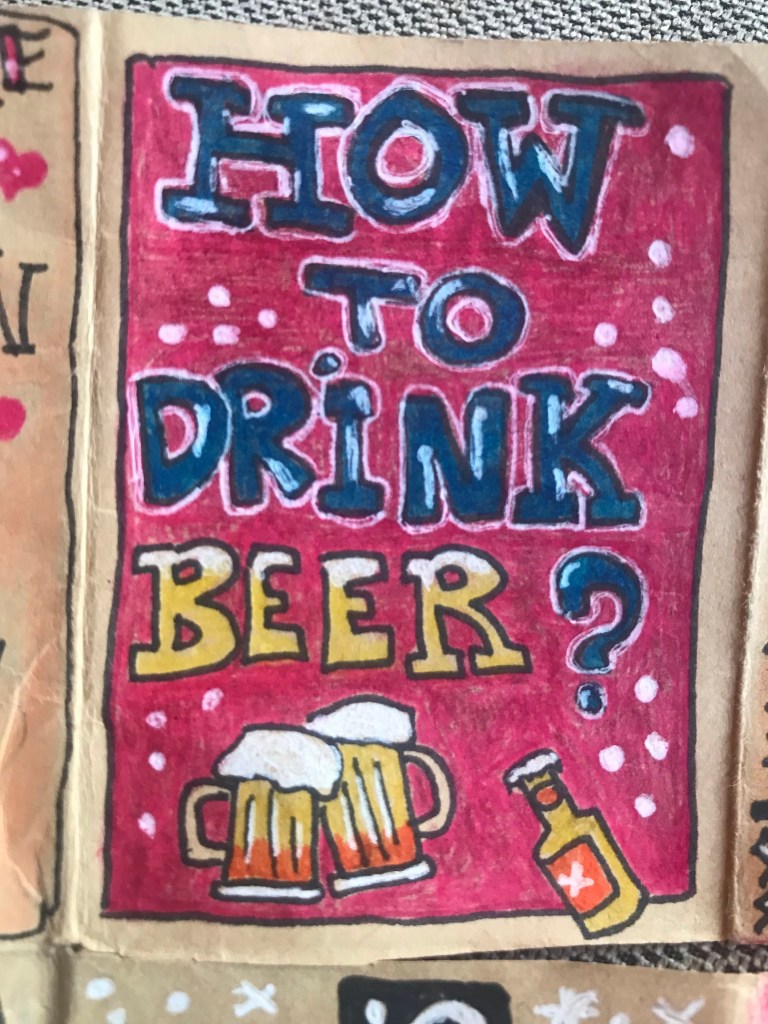 HOW
TO
DRiNK
BEER?